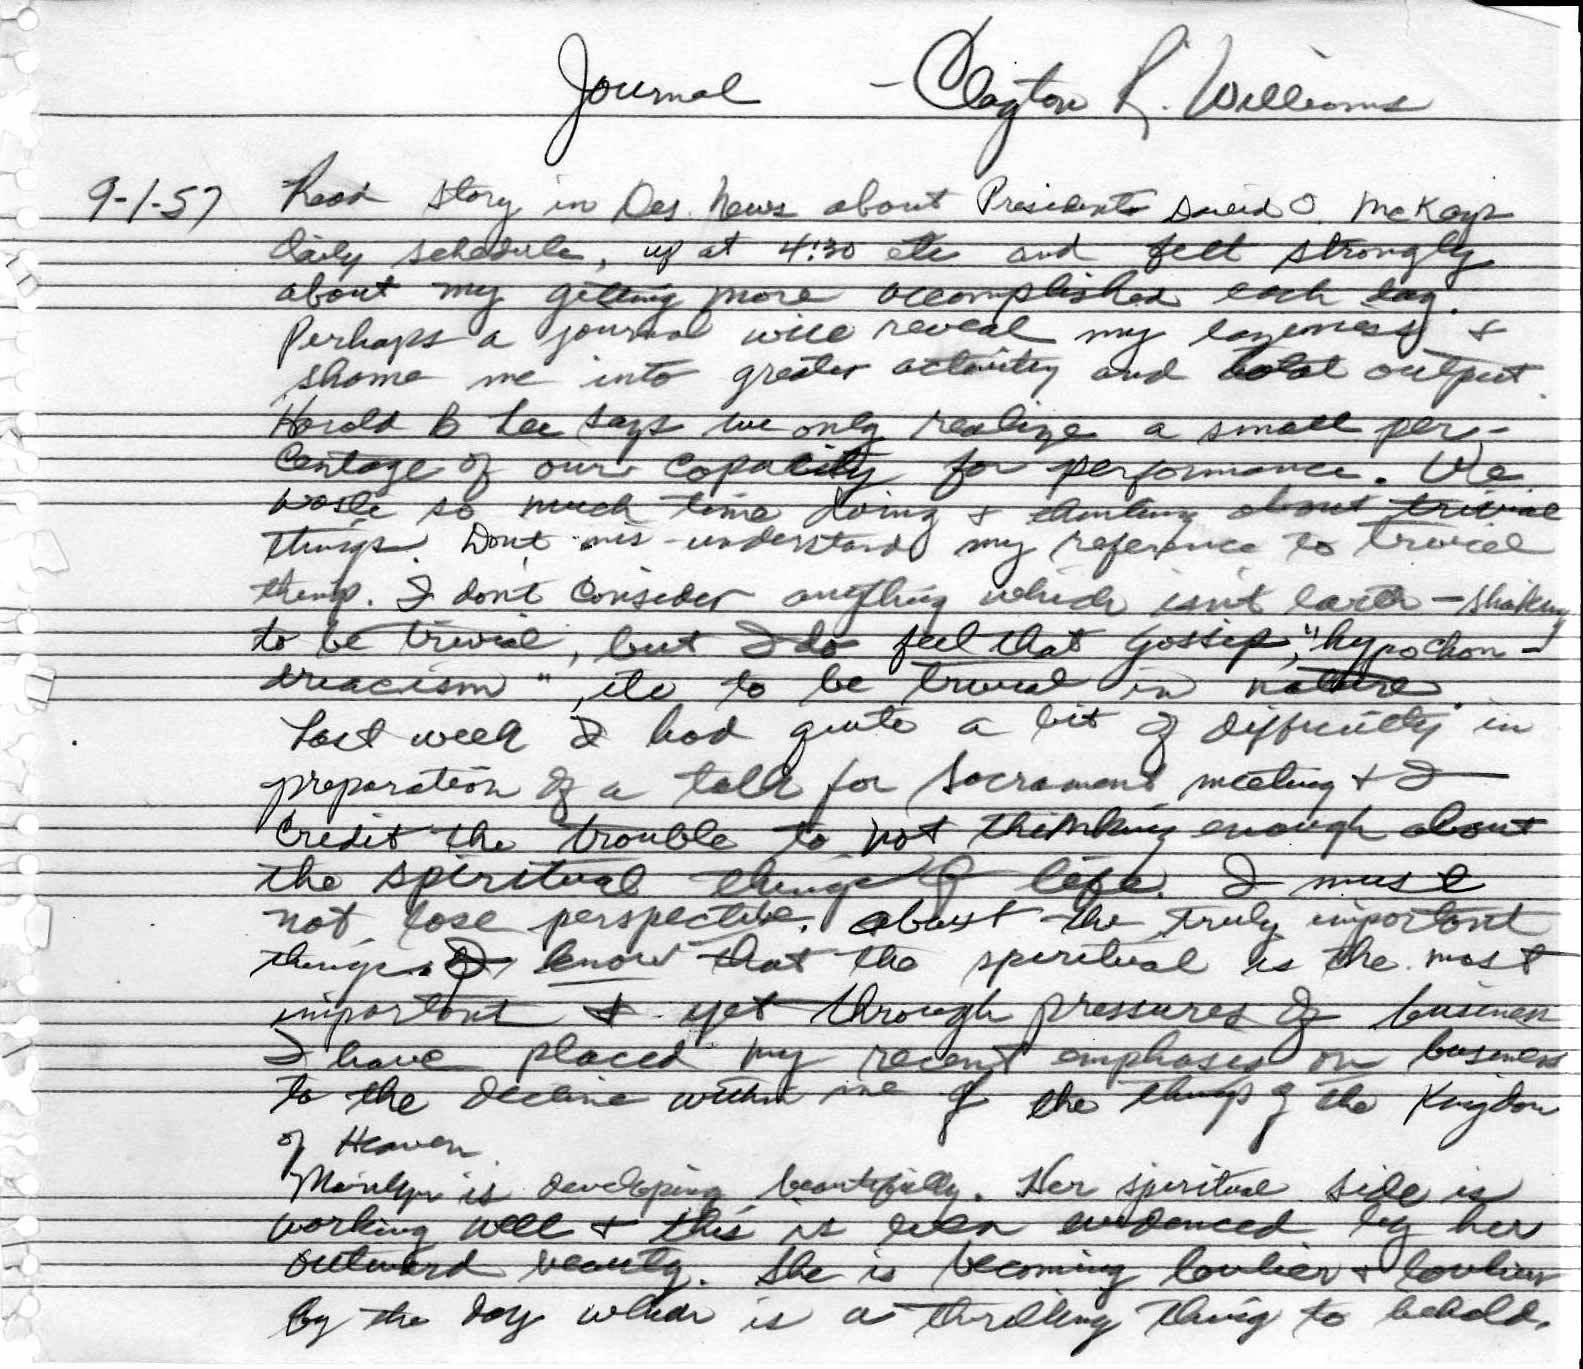 Journal - Clayton R. Williams
9-1-57 Read story in Des. News about Presidents David O. McKays
daily schedule, up at 4:30 etc and felt strongly
about my getting more accomplished each day.
Perhaps a journal will reveal my lazyness &
shame me into greater activity and total output.
Harold B Lee says we only realize a small per-
centage of our capacity for performance. We
waste so much time doing & thinking about trivial
things. Dont mis-understand my reference to trivial
things. I don't consider anything which isn't earth-shaking
to be trivial, but I do feel that gossip, "hypochon-
dreacism", etc to be trivial in nature.
Last week I had quite a bit of difficulty in
preparation of a talk for Sacrament meeting & I
credit the trouble to not thinking enough about
the spiritual things of life. I must
not lose perspective. about the truly important
things. I know that the spiritual is the most
important & yet through pressures of business
I have placed my recent emphasis on business
to the decline within me of the things of the Kingdom
of Heaven
Marilyn is developing beautifully. Her spiritual side is
working well & this is even evidenced by her
outward beauty. She is becoming lovlier & lovlier
by the day which is a thrilling thing to behold.